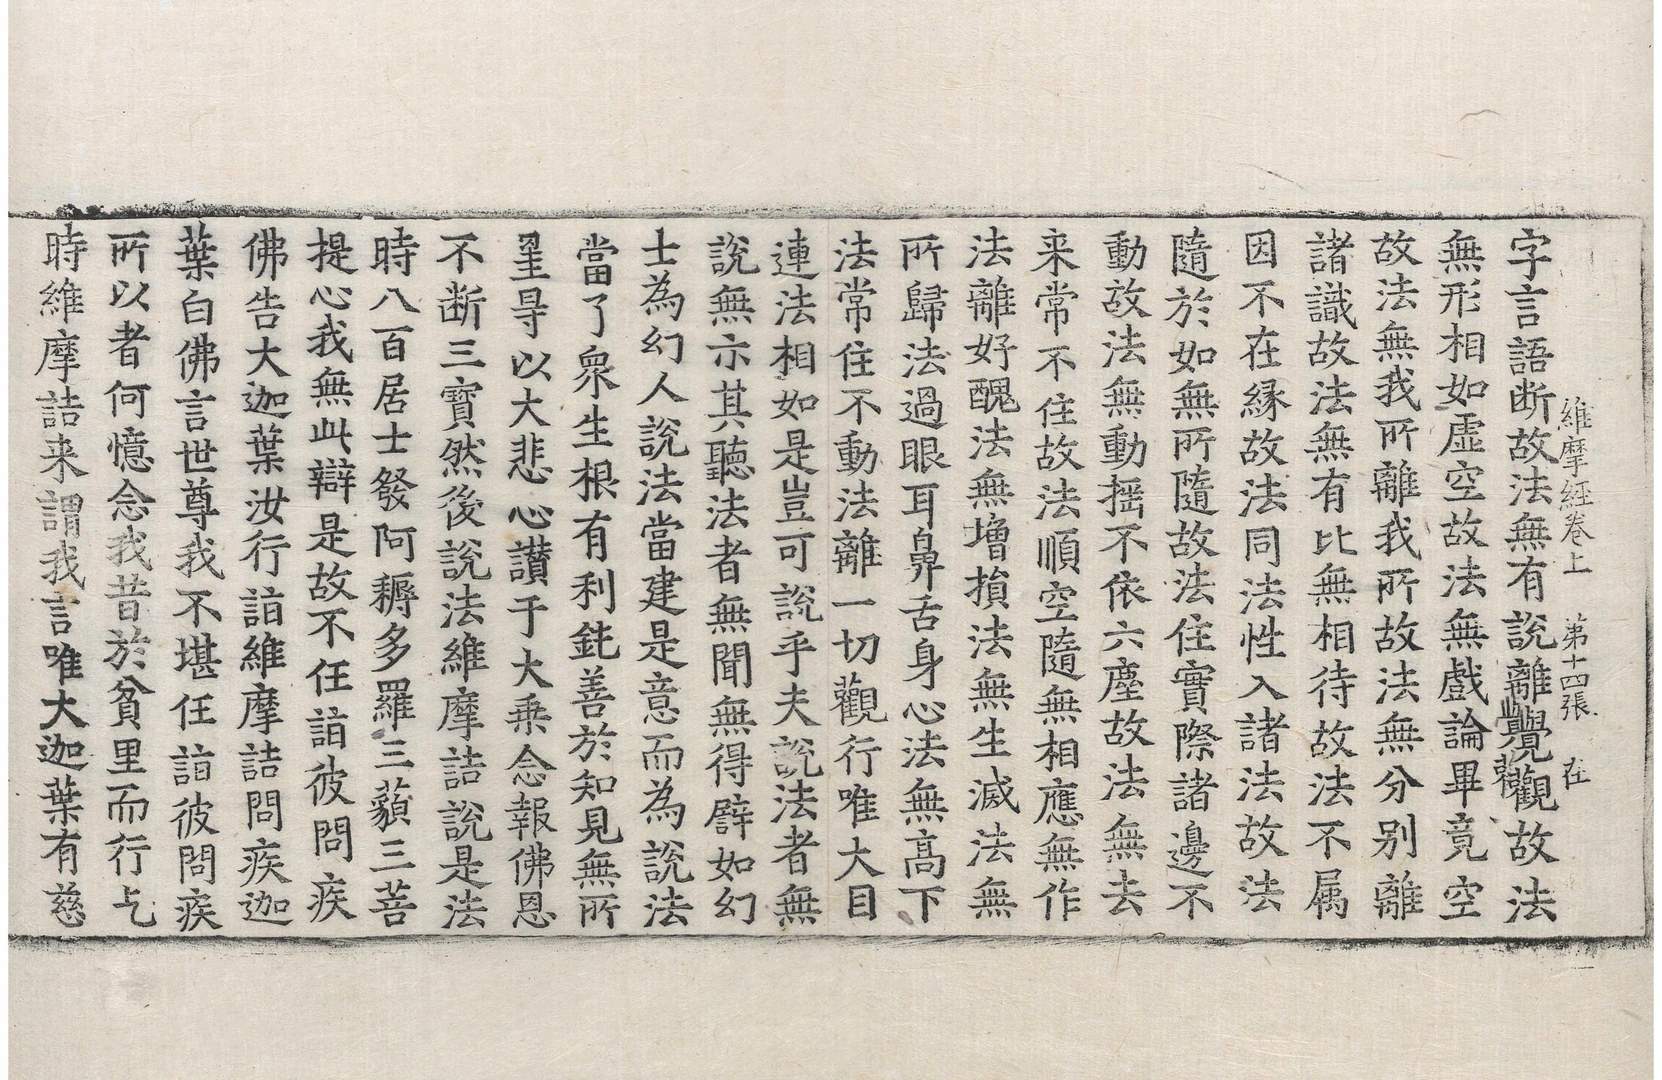 維摩経卷上　第十四張　在
字言語断故法無有說離覺觀故法
無形相如虛空故法無戲論畢竟空
故法無我所離我所故法無分別離
諸識故法無有比無相待故法不属
因不在縁故法同法性入諸法故法
隨於如無所隨故法住實際諸邊不
動故法無動揺不依六塵故法無去
来常不住故法順空隨無相應無作
法離好醜法無増損法無生滅法無
所歸法過眼耳鼻舌身心法無髙下
法常住不動法離一切觀行唯大目
連法相如是豈可說乎夫說法者無
說無示其聽法者無聞無得譬如幻
士為幻人說法當建是意而為說法
當了衆生根有利鈍善於知見無所
罣㝵以大悲心讃于大乗念報佛恩
不断三寶然後說法維摩詰說是法
時八百居士發阿耨多羅三藐三菩
提心我無此辯是故不任詣彼問疾
佛告大迦葉汝行詣維摩詰問疾迦
葉白佛言世尊我不堪任詣彼問疾
所以者何憶念我昔於貧里而行乞
時維摩詰来謂我言唯大迦葉有慈